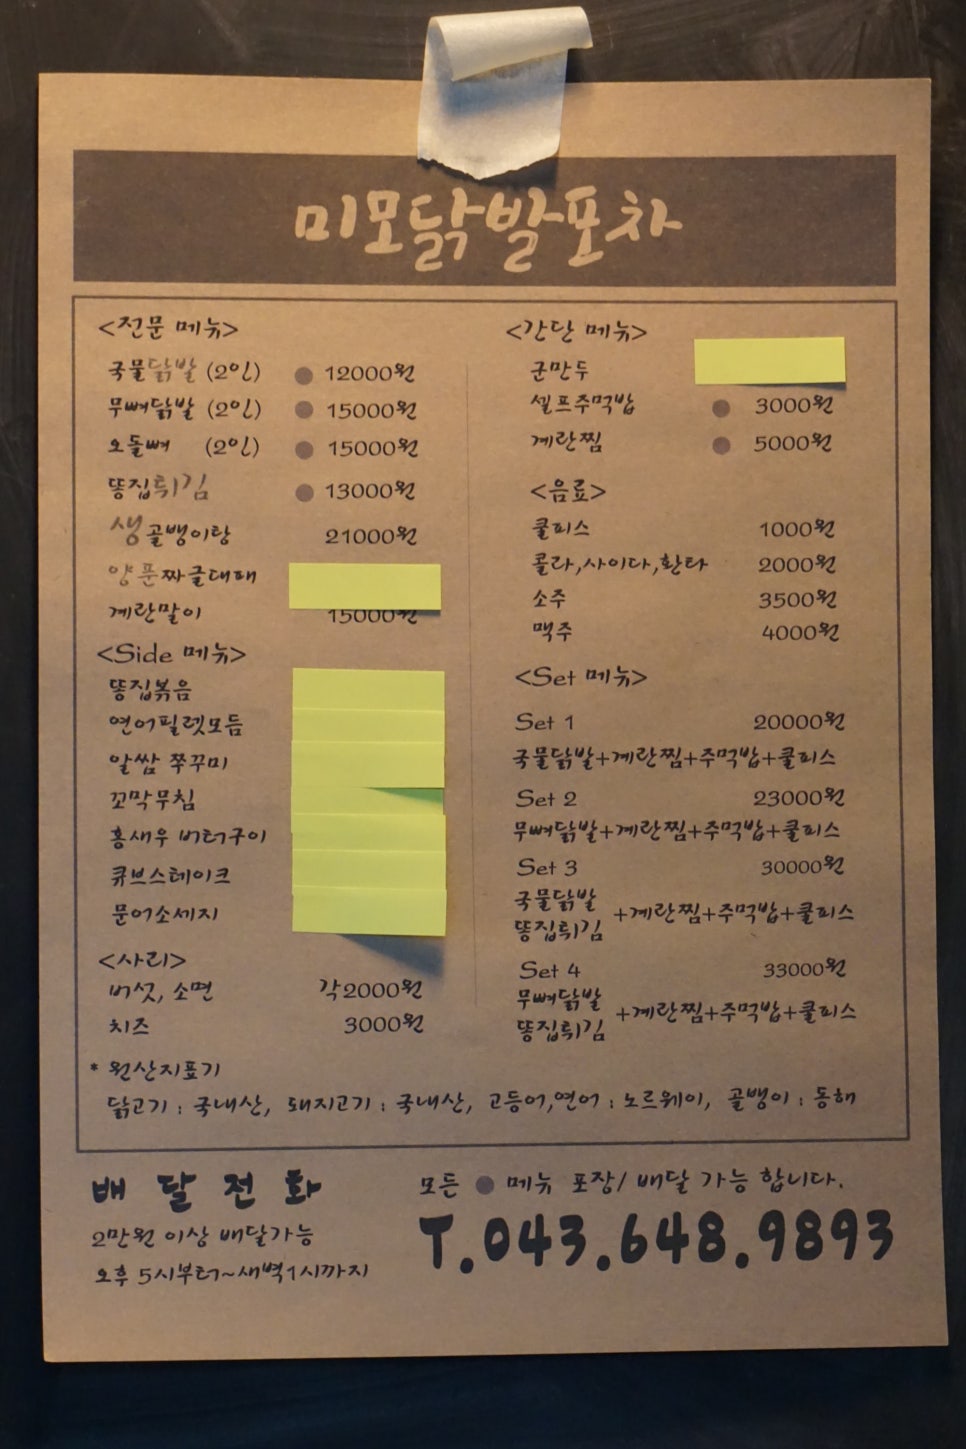 미모닭발포차
<전문 메뉴>
국물닭발 (2인) ● 12000원
무뼈닭발 (2인) ● 15000원
오돌뼈 (2인) ● 15000원
똥집튀김 ● 13000원
생골뱅이탕 21000원
양푼짜글대패
계란말이 15000원
<Side 메뉴>
똥집볶음
연어필렛모듬
알쌈 쭈꾸미
꼬막무침
홍새우 버터구이
큐브스테이크
문어소세지
<사리>
버섯, 소면 각2000원
치즈 3000원
<간단 메뉴>
군만두
셀프주먹밥 ● 3000원
계란찜 ● 5000원
<음료>
쿨피스 1000원
콜라,사이다,환타 2000원
소주 3500원
맥주 4000원
<Set 메뉴>
Set 1 20000원
국물닭발+계란찜+주먹밥+쿨피스
Set 2 23000원
무뼈닭발+계란찜+주먹밥+쿨피스
Set 3 30000원
국물닭발
똥집튀김 +계란찜+주먹밥+쿨피스
Set 4 33000원
무뼈닭발
똥집튀김 +계란찜+주먹밥+쿨피스
* 원산지표기
닭고기 : 국내산, 돼지고기 : 국내산, 고등어,연어 : 노르웨이, 골뱅이 : 동해
배 달 전 화
2만원 이상 배달가능
오후 5시부터~새벽1시까지
모든 ● 메뉴 포장/ 배달 가능 합니다.
T.043.648.9893